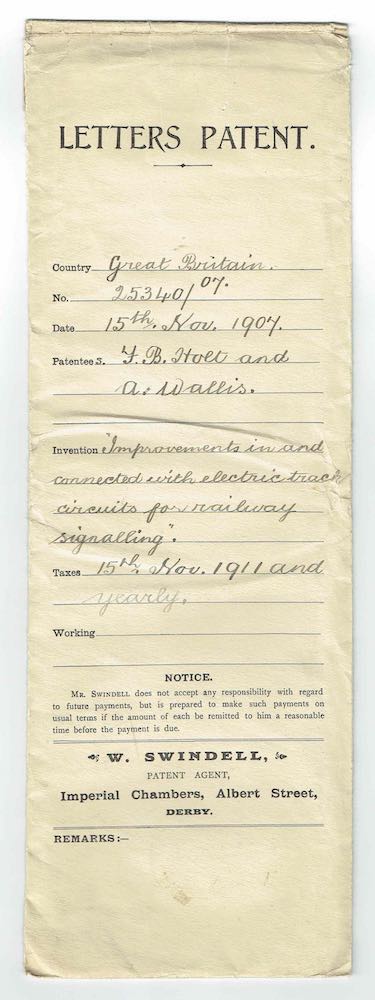 LETTERS PATENT.
Country Great Britain.
No. 25340/07.
Date 15th. Nov. 1907.
Patentees. F. B. Holt and
A. Wallis.
Invention "Improvements in and
connected with electric track
circuits for railway
signalling".
Taxes 15th. Nov. 1911 and
yearly.
Working
NOTICE.
Mr. Swindell does not accept any responsibility with regard
to future payments, but is prepared to make such payments on
usual terms if the amount of each be remitted to him a reasonable
time before the payment is due.
W. SWINDELL,
PATENT AGENT,
Imperial Chambers, Albert Street,
DERBY.
REMARKS:—